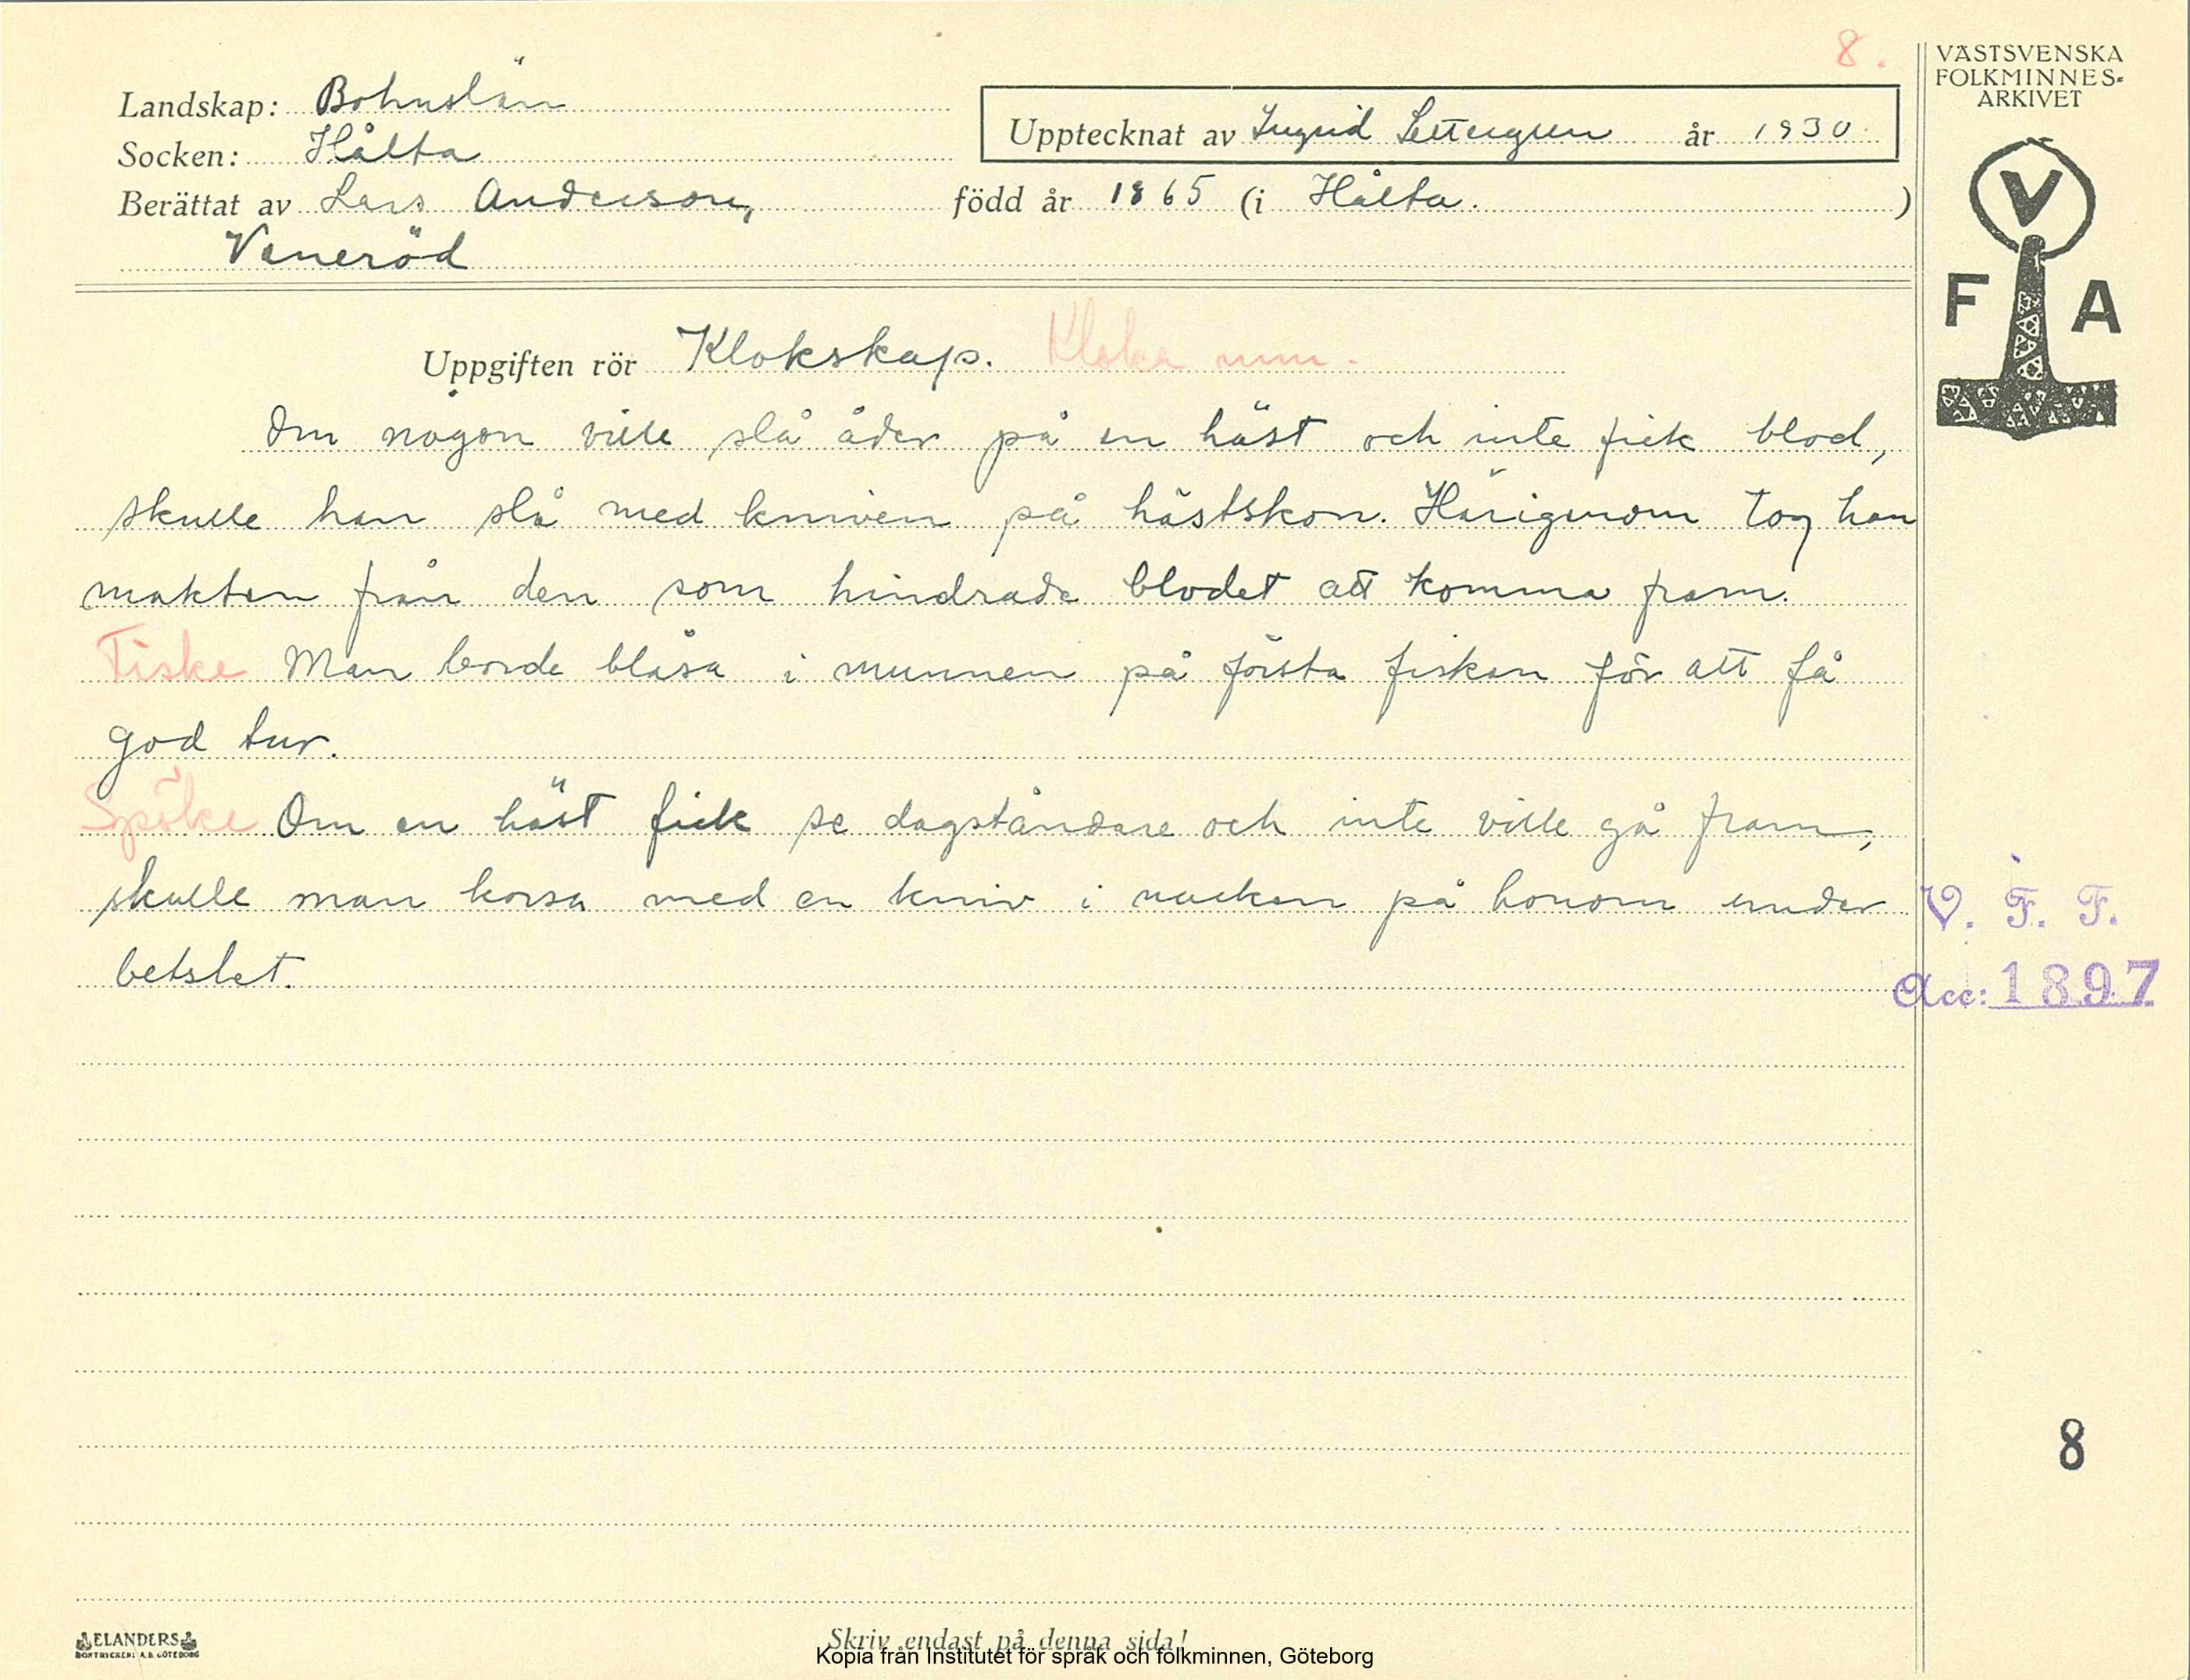 8.
VÄSTSVENSKA
FOLKMINNES-
ARKIVET
Landskap: Bohuslän
Upptecknat av Ingrid Settergren år 1930.
Socken: Hålta
Berättat av Lars Anderson, född år 1865 (i Hålta. )
Veneröd
V
F A
Uppgiften rör Klokskap. Kloka mm.
Om någon ville slå åder på en häst och inte fick blod,
skulle han slå med kniven på hästskon. Härigenom tog han
makten från den som hindrade blodet att komma fram.
Fiske Man borde blåsa i munnen på första fisken för att få
god tur.
Spöke Om en häst fick se dagståndare och inte ville gå fram,
skulle man korsa med en kniv i nacken på honom under
betslet.
V. F. F.
Acc: 1897
8
ELANDERS
BOKTRYCKERI A.B. GÖTEBORG
Skriv endast på denna sida!
Kopia från Institutet för språk och folkminnen, Göteborg